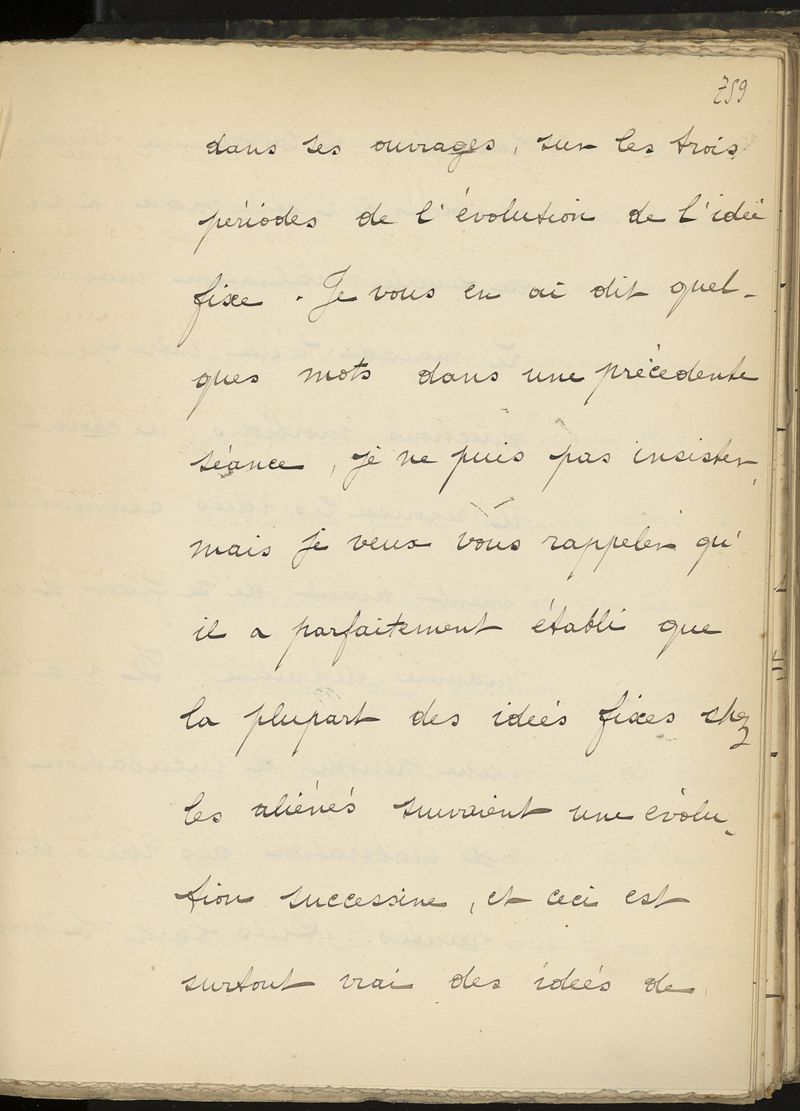 759
dans ses ouvrages, sur les trois
périodes de l'évolution de l'idée
fixe. Je vous en ai dit quel-
ques mots dans une précédente
séance, je ne puis pas insister,
mais je veux vous rappeler qu'
il a parfaitement établi que
la plupart des idées fixes chez
les aliénés suivaient une évolu-
tion successive, et ceci est
surtout vrai des idées de